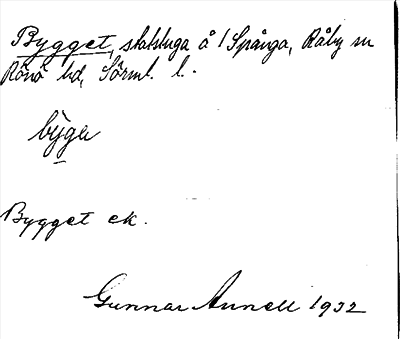 Bygget, statstuga å 1 Spånga, Råby sn
Rönö hd, Sörml. l.
bỳge
Bygget ek.
Gunnar Annell 1932